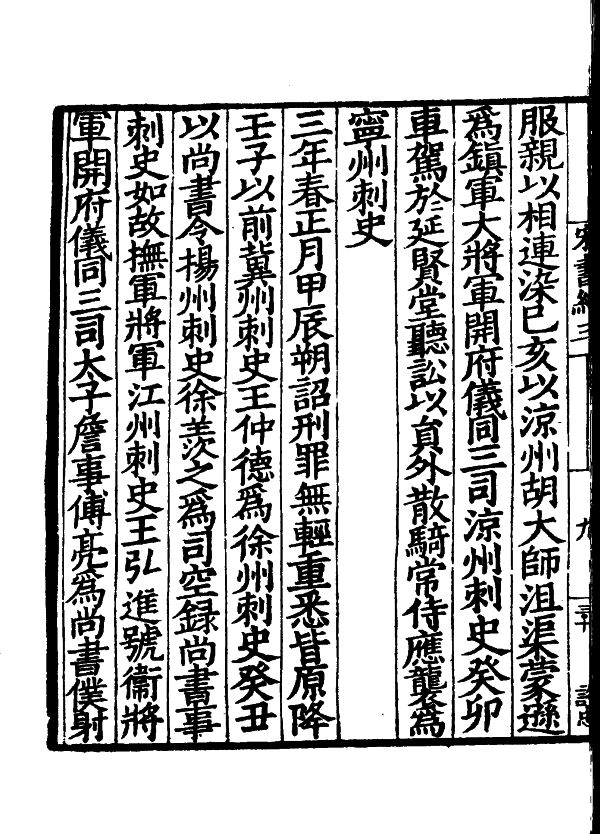 宋書紀三
九
服親以相連染己亥以涼州胡大師沮渠蒙遜
爲鎮軍大將軍開府儀同三司涼州刺史癸卯
車駕於延賢堂聽訟以員外散騎常侍應襲爲
寧州刺史
三年春正月甲辰朔詔刑罪無輕重悉皆原降
壬子以前冀州刺史王仲德爲徐州刺史癸丑
以尚書令揚州刺史徐羨之爲司空録尚書事
刺史如故撫軍將軍江州刺史王弘進號衞將
軍開府儀同三司太子詹事傅亮爲尚書僕射